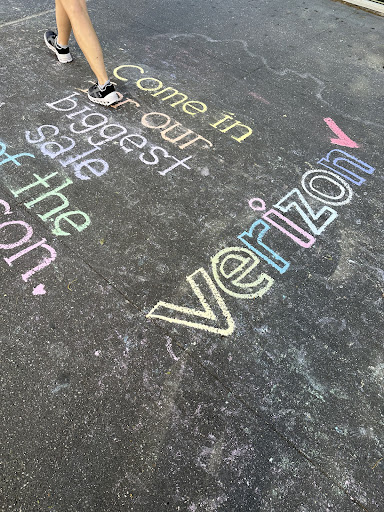 Come in
our
biggest
sale
of the
son
verizon